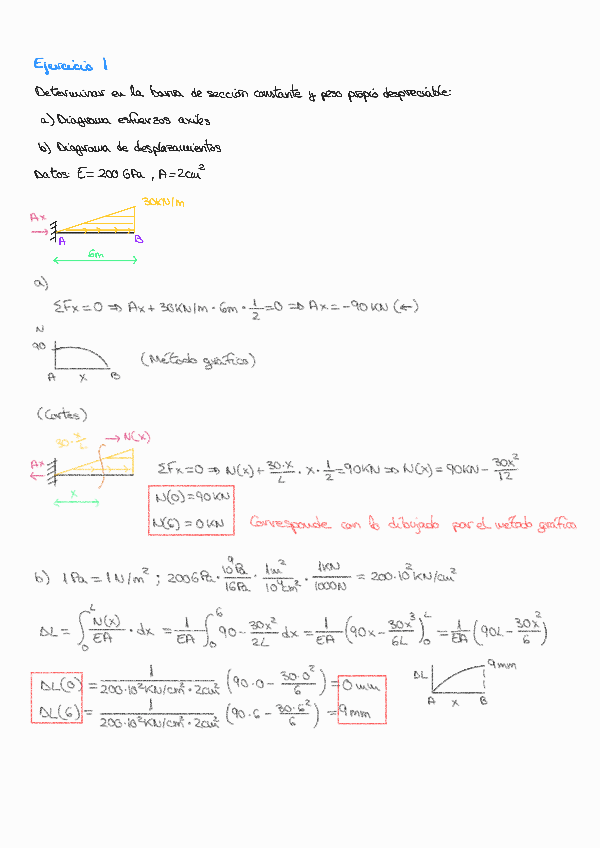 Ejercicio 1
Determinar en la barra de sección constante y peso propio despreciable:
a) Diagrama esfuerzos axiles
b) Diagrama de desplazamientos
Datos: E = 200 GPa , A = 2cm²
30KN/m
Ax
A B
6m
a)
ΣFx = 0 ⇒ Ax + 30KN/m · 6m · 1/2 = 0 ⇒ Ax = -90KN (←)
N
90
A X B
(Método gráfico)
(Cortes)
30·x/L
→ N(x)
Ax
x
ΣFx = 0 ⇒ N(x) + 30·x/L · x · 1/2 = 90KN ⇒ N(x) = 90KN - 30x²/12
N(0) = 90KN
N(6) = 0KN
Corresponde con lo dibujado por el metodo gráfico
b) 1Pa = 1N/m² ; 200GPa · 10⁹Pa/1GPa · 1m²/10⁴cm² · 1KN/1000N = 200·10²KN/cm²
ΔL = ∫₀ᴸ N(x)/EA · dx = 1/EA ∫₀⁶ 90 - 30x²/2L dx = 1/EA (90x - 30x³/6L)₀ᴸ = 1/EA (90L - 30x²/6)
ΔL(0) = 1/200·10²KN/cm²·2cm² (90·0 - 30·0²/6) = 0mm
ΔL(6) = 1/200·10²KN/cm²·2cm² (90·6 - 30·6²/6) = 9mm
ΔL
9mm
A X B